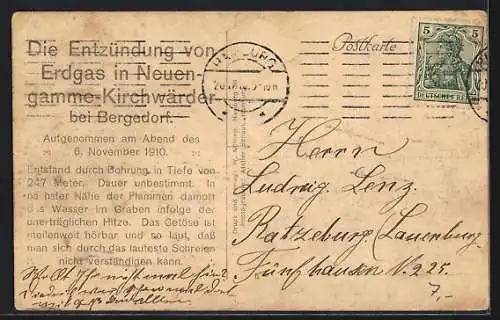 Die Entzündung von
Erdgas in Neuen-
gamme-Kirchwärder
bei Bergedorf.
Aufgenommen am Abend des
6. November 1910.
Entstand durch Bohrung in Tiefe von
247 Meter. Dauer unbestimmt. In
naher Nähe der Flammen dampft
das Wasser im Graben infolge der
unerträglichen Hitze. Das Getöse ist
meilenweit hörbar und so laut, daß
man sich durch das lauteste Schreien
nicht verständigen kann.
HAMBURG
Postkarte
5 5
DEUTSCHES REICH
Herrn
Ludwig Lenz.
Ratzeburg, Lauenburg.
Fünfhausen N. 225.
7,-